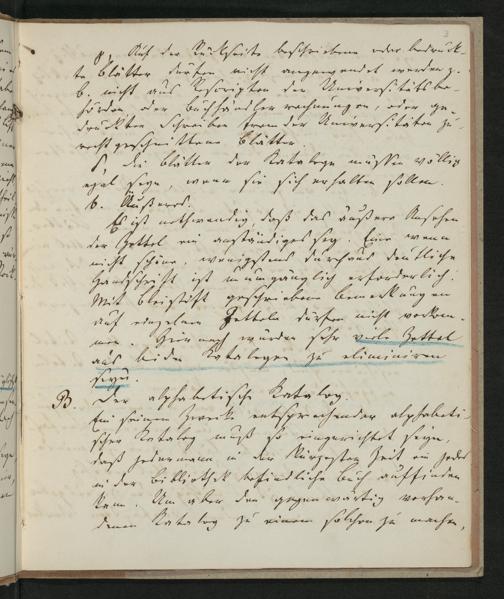 3
γ, Auf der Rückseite beschriebene oder bedruck-
te Blätter dürfen nicht angewendet werden z.
B. nicht aus Rescripten der Universitätsbe-
hörden oder Buchhändlerrechnungen, oder ge-
druckten Schreiben fremder Universitäten zu-
rechtgeschnittene Blätter.
δ, die Blätter der Kataloge müssen völlig
egal seyn, wenn sie sich erhalten sollen.
b. Äußeres.
Es ist nothwendig daß das äußere Ansehen
der Zettel ein anständiges sey. Eine wenn
nicht schöne, wenigstens durchaus deutliche
Handschrift ist unumgänglich erforderlich.
Mit Bleistift geschriebene Bemerkungen
auf einzelnen Zetteln dürfen nicht vorkom-
men. Hiernach würden sehr viele Zettel
aus beiden Katalogen zu eliminiren
seyn.
B. Der alphabetische Katalog.
Ein seinem Zweck entsprechender alphabeti-
scher Katalog muß so eingerichtet seyn,
daß jedermann in der kürzesten Zeit ein jedes
in der Bibliothek befindliche Buch auffinden
kann. Um aber den gegenwärtig vorhan-
denen Katalog zu einem solchen zu machen,